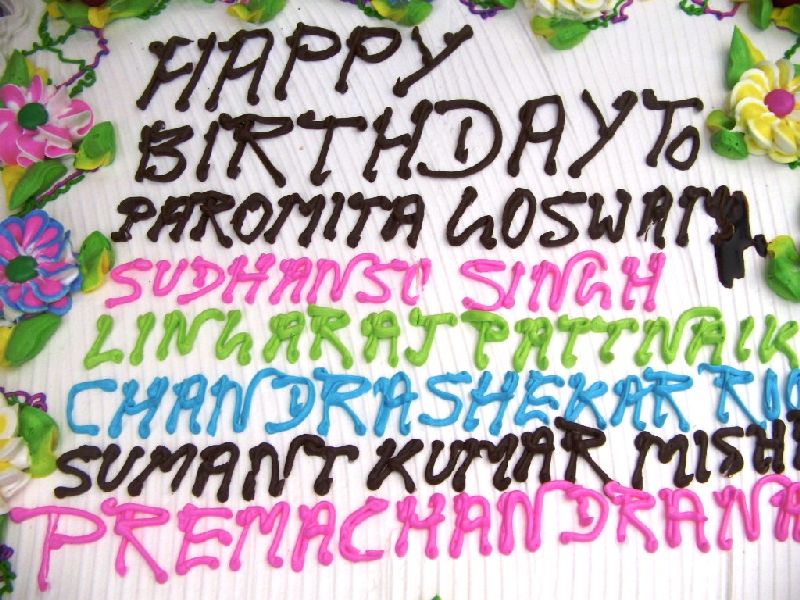 HAPPY
BIRTHDAY TO
PAROMITA GOSWAMI
SUDHANSU SINGH
LINGARAJ PATTNAIK
CHANDRASHEKAR
SUMANT KUMAR MISH
PREMACHANDRANA